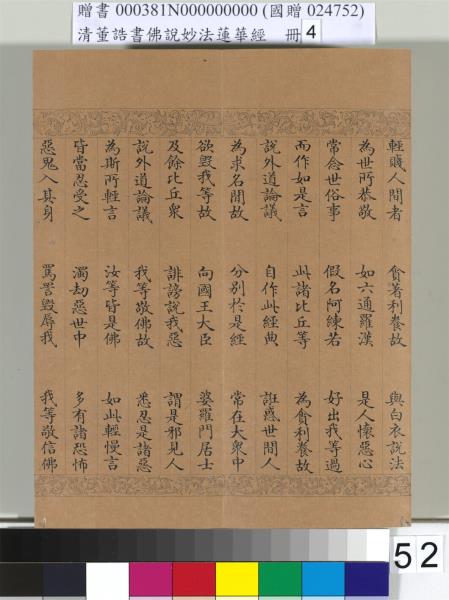 贈書 000381N000000000 (國贈 024752)
清董誥書佛說妙法蓮華經 冊 4
輕賤人間者 貪著利養故 與白衣說法
為世所恭敬 如六通羅漢 是人懷惡心
常念世俗事 假名阿練若 好出我等過
而作如是言 此諸比丘等 為貪利養故
說外道論議 自作此經典 誑惑世間人
為求名聞故 分別於是經 常在大衆中
欲毀我等故 向國王大臣 婆羅門居士
及餘比丘衆 誹謗說我惡 謂是邪見人
說外道論議 我等敬佛故 悉忍是諸惡
為斯所輕言 汝等皆是佛 如此輕慢言
皆當忍受之 濁劫惡世中 多有諸恐怖
惡鬼入其身 罵詈毀辱我 我等敬信佛
52